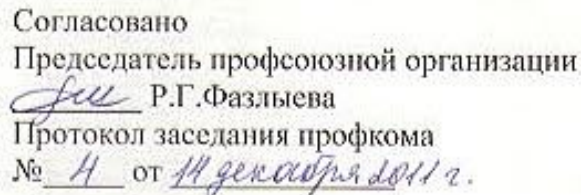 Согласовано
Председатель профсоюзной организации
Р.Г.Фазлыева
Протокол заседания профкома
№ 4 от 14 декабря 2011 г.